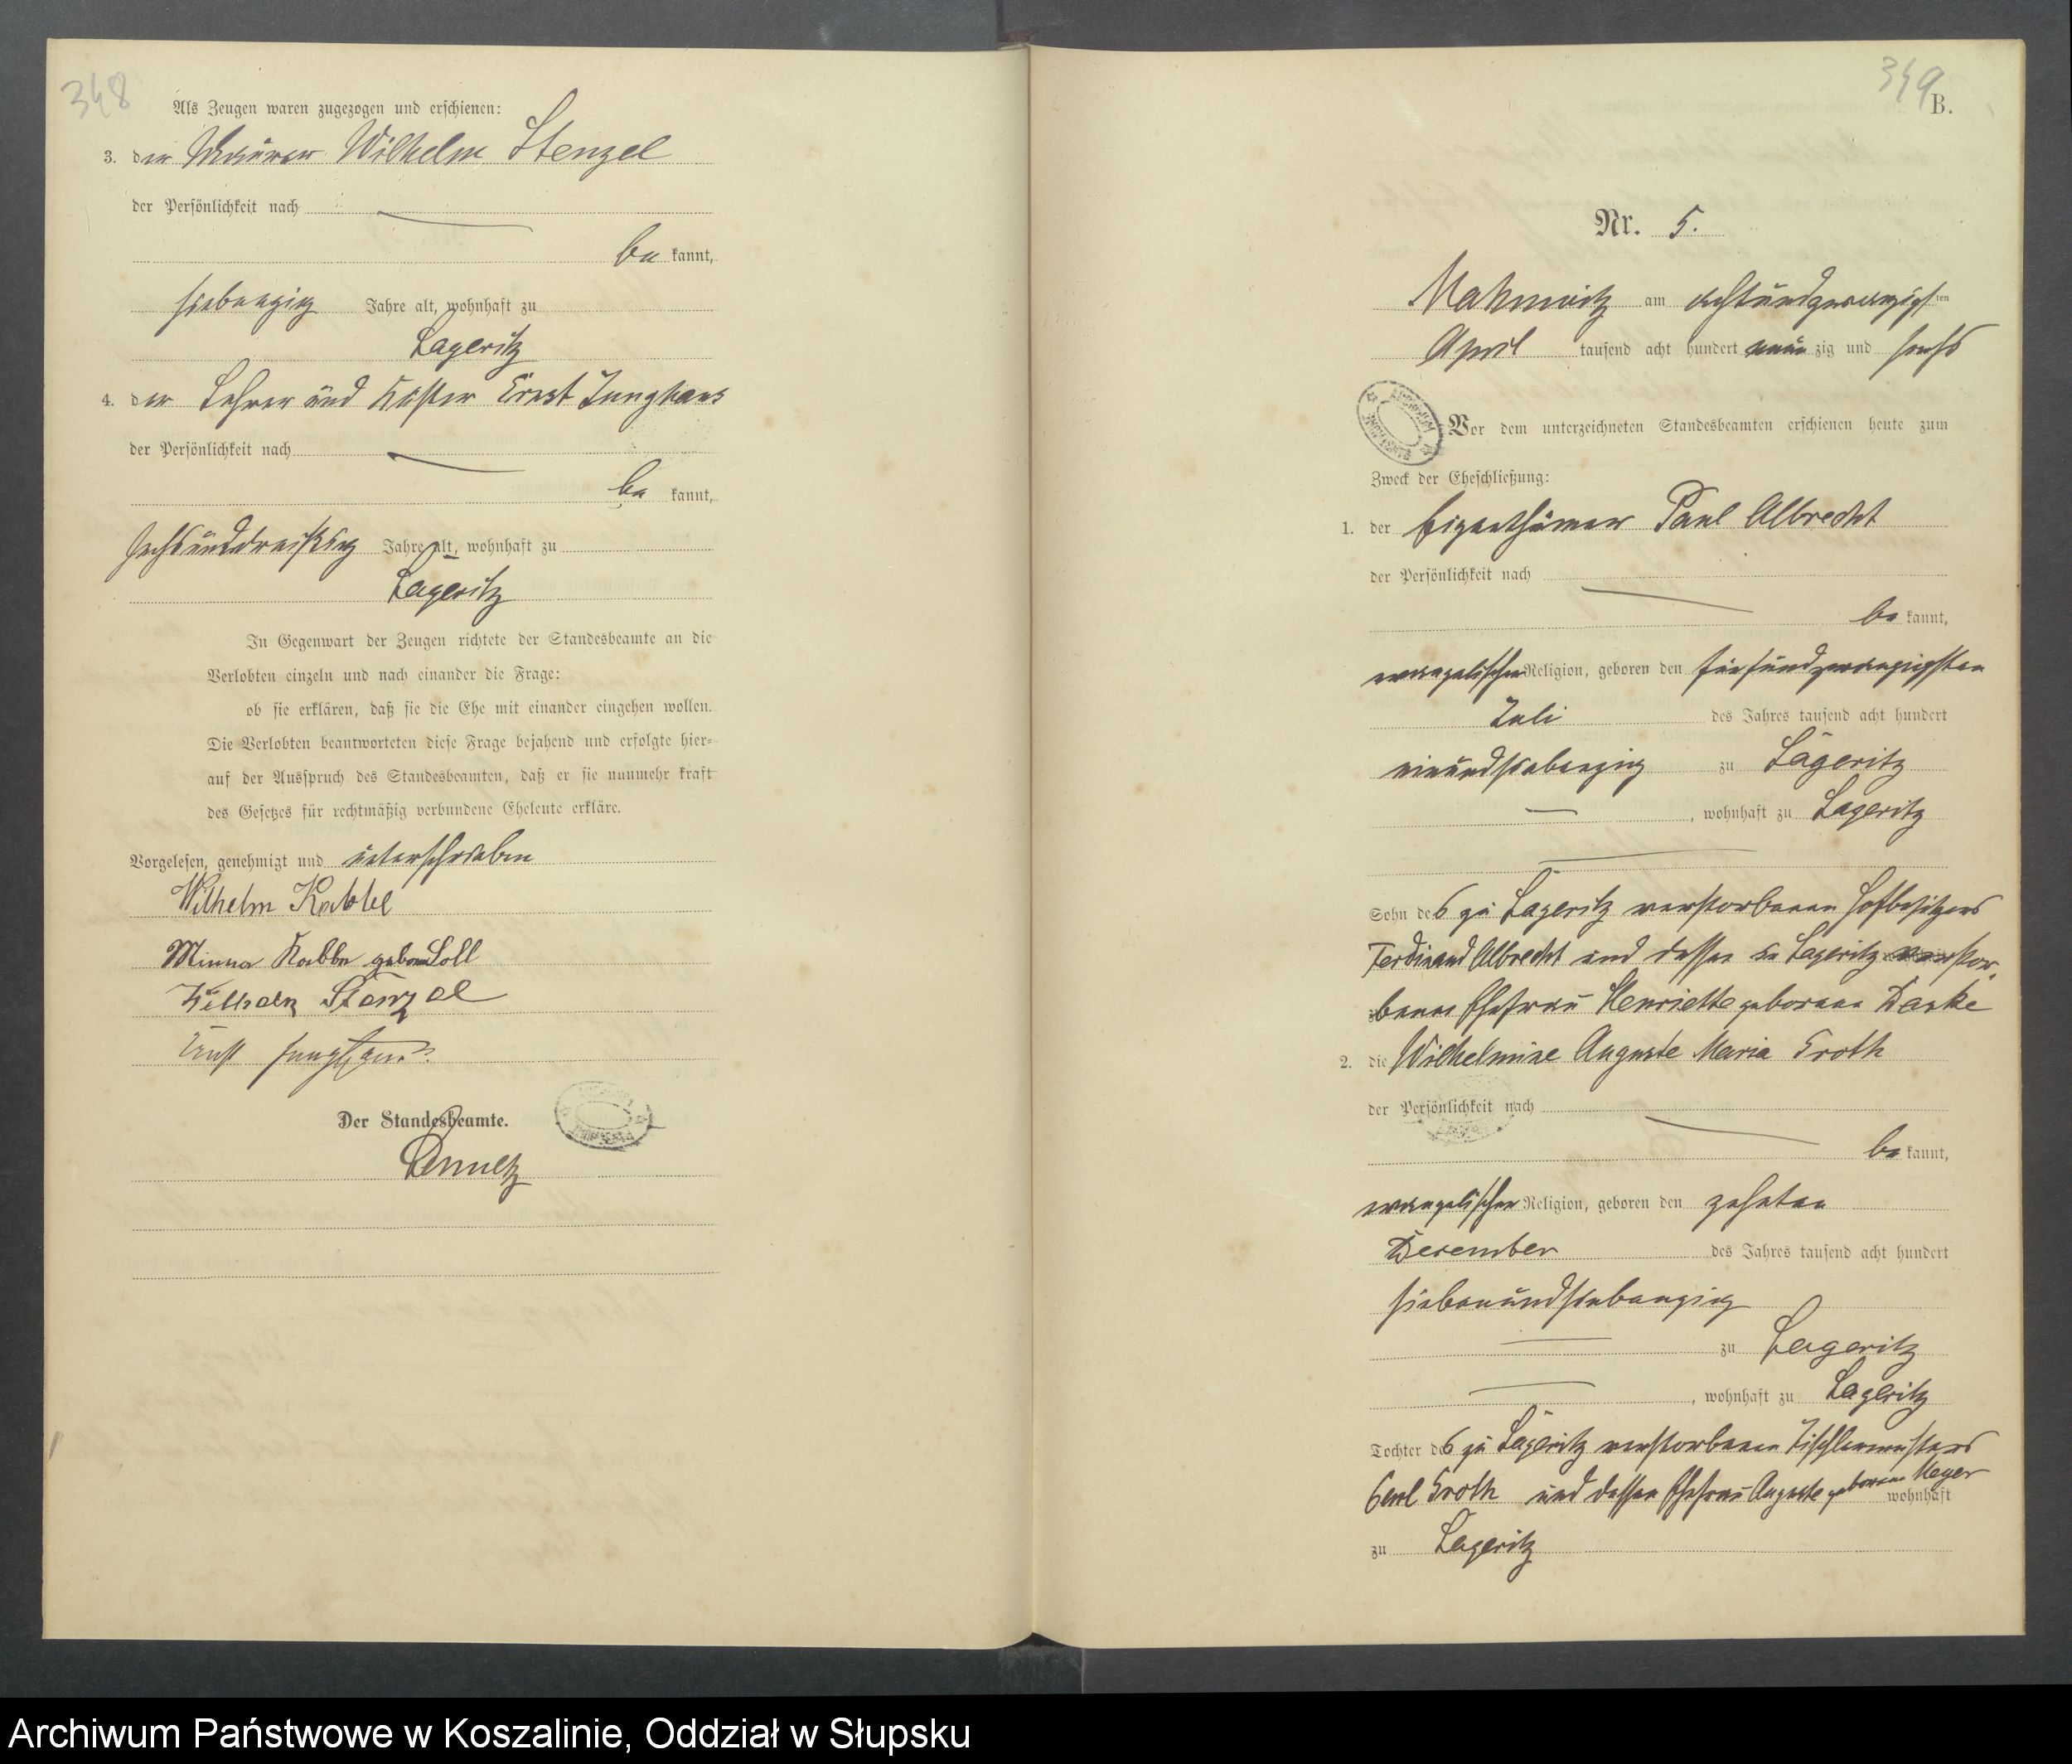 348
Als Zeugen waren zugezogen und erschienen:
3. der Maurer Wilhelm Stenzel
der Persönlichkeit nach
bekannt,
siebenzig Jahre alt, wohnhaft zu
Lageritz
4. der Lehrer und Küster Ernst Junghans
der Persönlichkeit nach
bekannt,
sechsunddreißig Jahre alt, wohnhaft zu
Lageritz
In Gegenwart der Zeugen richtete der Standesbeamte an die
Verlobten einzeln und nach einander die Frage:
ob sie erklären, daß sie die Ehe mit einander eingehen wollen.
Die Verlobten beantworteten diese Frage bejahend und erfolgte hier-
auf der Ausspruch des Standesbeamten, daß er sie nunmehr kraft
des Gesetzes für rechtmäßig verbundene Eheleute erkläre.
Vorgelesen, genehmigt und unterschrieben
Wilhelm Kabbe
Minna Kabbe geboren Soll
Wilhelm Stenzel
Ernst Junghans
Der Standesbeamte.
349
B.
Nr. 5.
Mahnwitz am achtundzwanzigsten
April tausend acht hundert neunzig und sechs
Vor dem unterzeichneten Standesbeamten erschienen heute zum
Zweck der Eheschließung:
1. der Eigenthümer Paul Albrecht
der Persönlichkeit nach
bekannt,
evangelischer Religion, geboren den fünfundzwanzigsten
Juli des Jahres tausend acht hundert
einundsiebenzig zu Lageritz
, wohnhaft zu Lageritz
Sohn des zu Lageritz verstorbenen Hofbesitzers
Ferdinand Albrecht und dessen zu Lageritz verstor-
benen Ehefrau Henriette geborene Darke
2. die Wilhelmine Auguste Maria Groth
der Persönlichkeit nach
bekannt,
evangelischer Religion, geboren den zehnten
December des Jahres tausend acht hundert
siebenundsiebenzig
zu Lageritz
, wohnhaft zu Lageritz
Tochter des zu Lageritz verstorbenen Tischlermeisters
Carl Groth und dessen Ehefrau Auguste geborene Meyer wohnhaft
zu Lageritz
Archiwum Państwowe w Koszalinie, Oddział w Słupsku